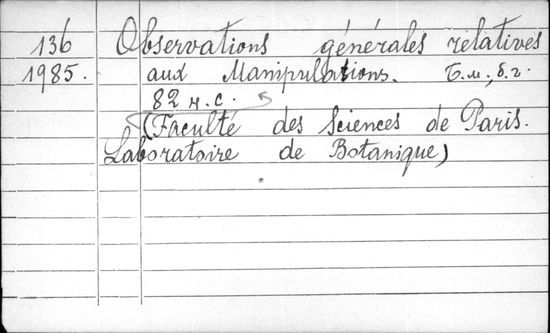 136 Observations générales relatives
1985. aud Manipulations. Б.м., б.г.
82 н.с.
(Faculté des Sciences de Paris.
Laboratoire de Botanique)